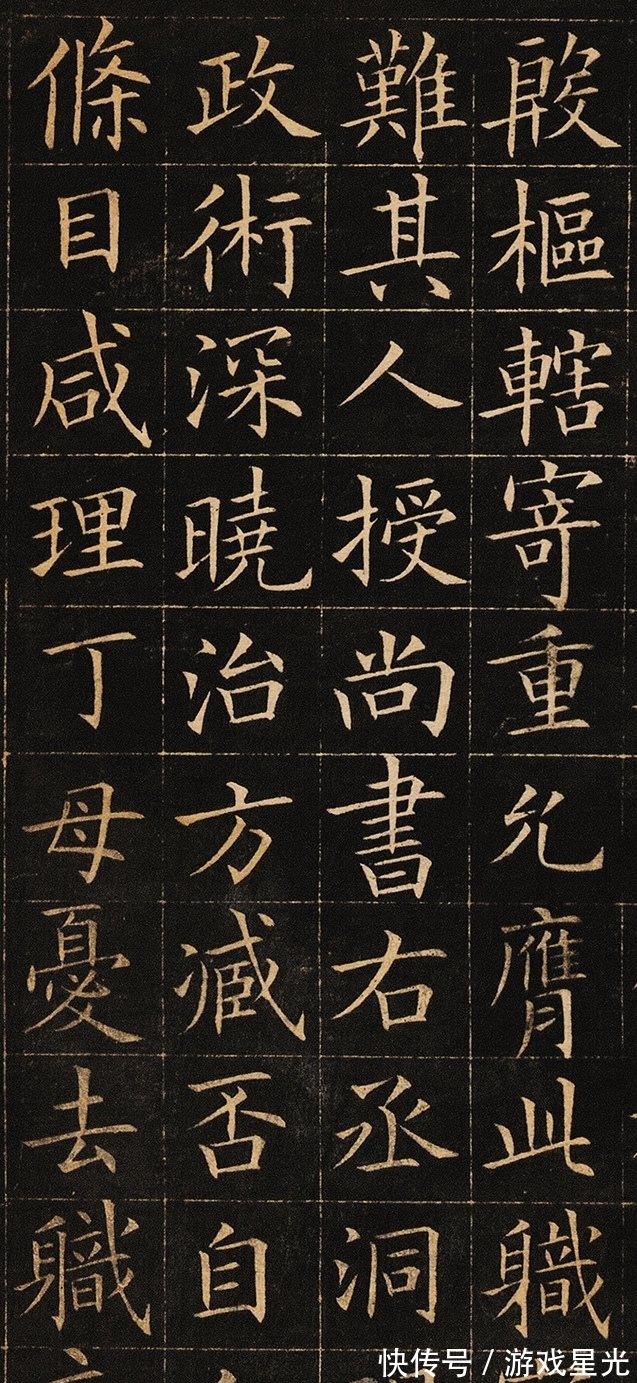 樞轄寄重允膺此軄
難其人授尚書右丞洞
政術深曉治方臧否自
條目咸理丁母憂去軄
快传号/游戏星光